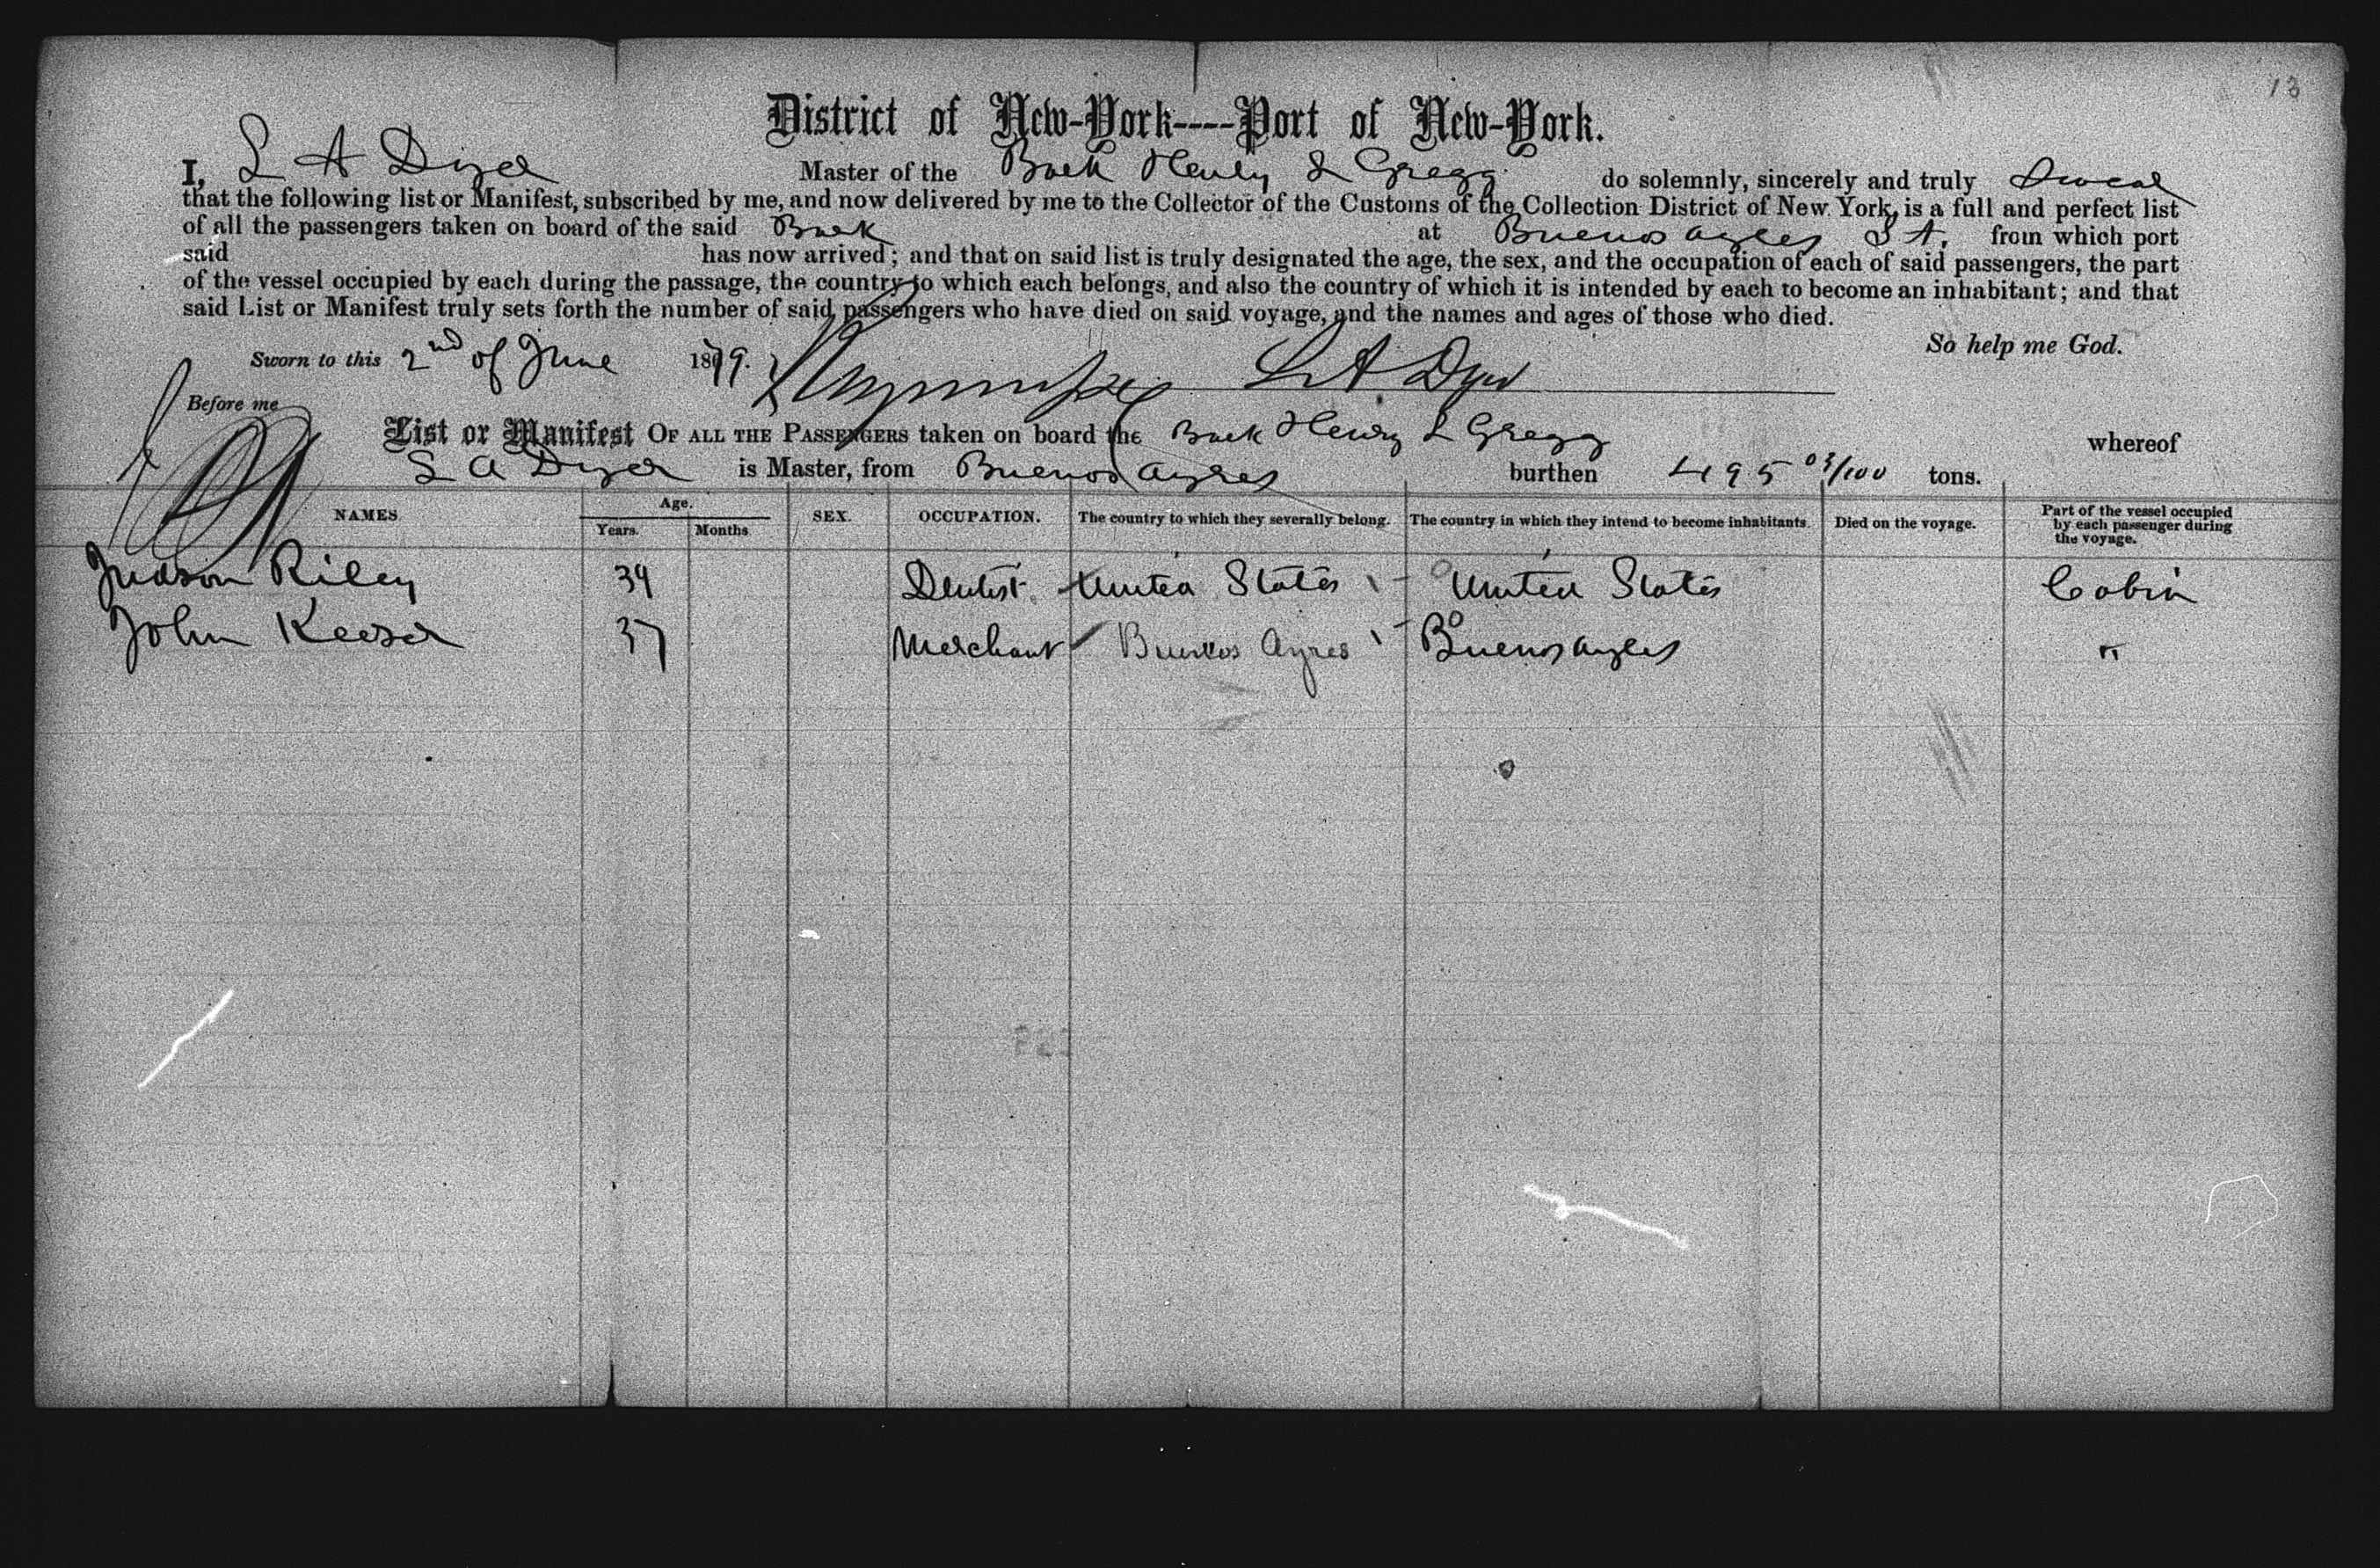 13
District of New-York----Port of New-York.
I, L A Dyer Master of the Bark Henry L Gregg do solemnly, sincerely and truly Swear
that the following list or Manifest, subscribed by me, and now delivered by me to the Collector of the Customs of the Collection District of New York, is a full and perfect list
of all the passengers taken on board of the said Bark at Buenos Ayres S A. from which port
said has now arrived; and that on said list is truly designated the age, the sex, and the occupation of each of said passengers, the part
of the vessel occupied by each during the passage, the country to which each belongs, and also the country of which it is intended by each to become an inhabitant; and that
said List or Manifest truly sets forth the number of said passengers who have died on said voyage, and the names and ages of those who died.
So help me God.
Sworn to this 2nd of June 1879. L A Dyer
Before me
List or Manifest OF ALL THE PASSENGERS taken on board the Bark Henry L Gregg whereof
L A Dyer is Master, from Buenos Ayres burthen 495 03/100 tons.
NAMES Age. Years. Months SEX. OCCUPATION. The country to which they severally belong. The country in which they intend to become inhabitants. Died on the voyage. Part of the vessel occupied by each passenger during the voyage.
Judson Riley 39 Dentist United States United States Cabin
John Keeser 37 Merchant Buenos Ayres Buenos Ayres "